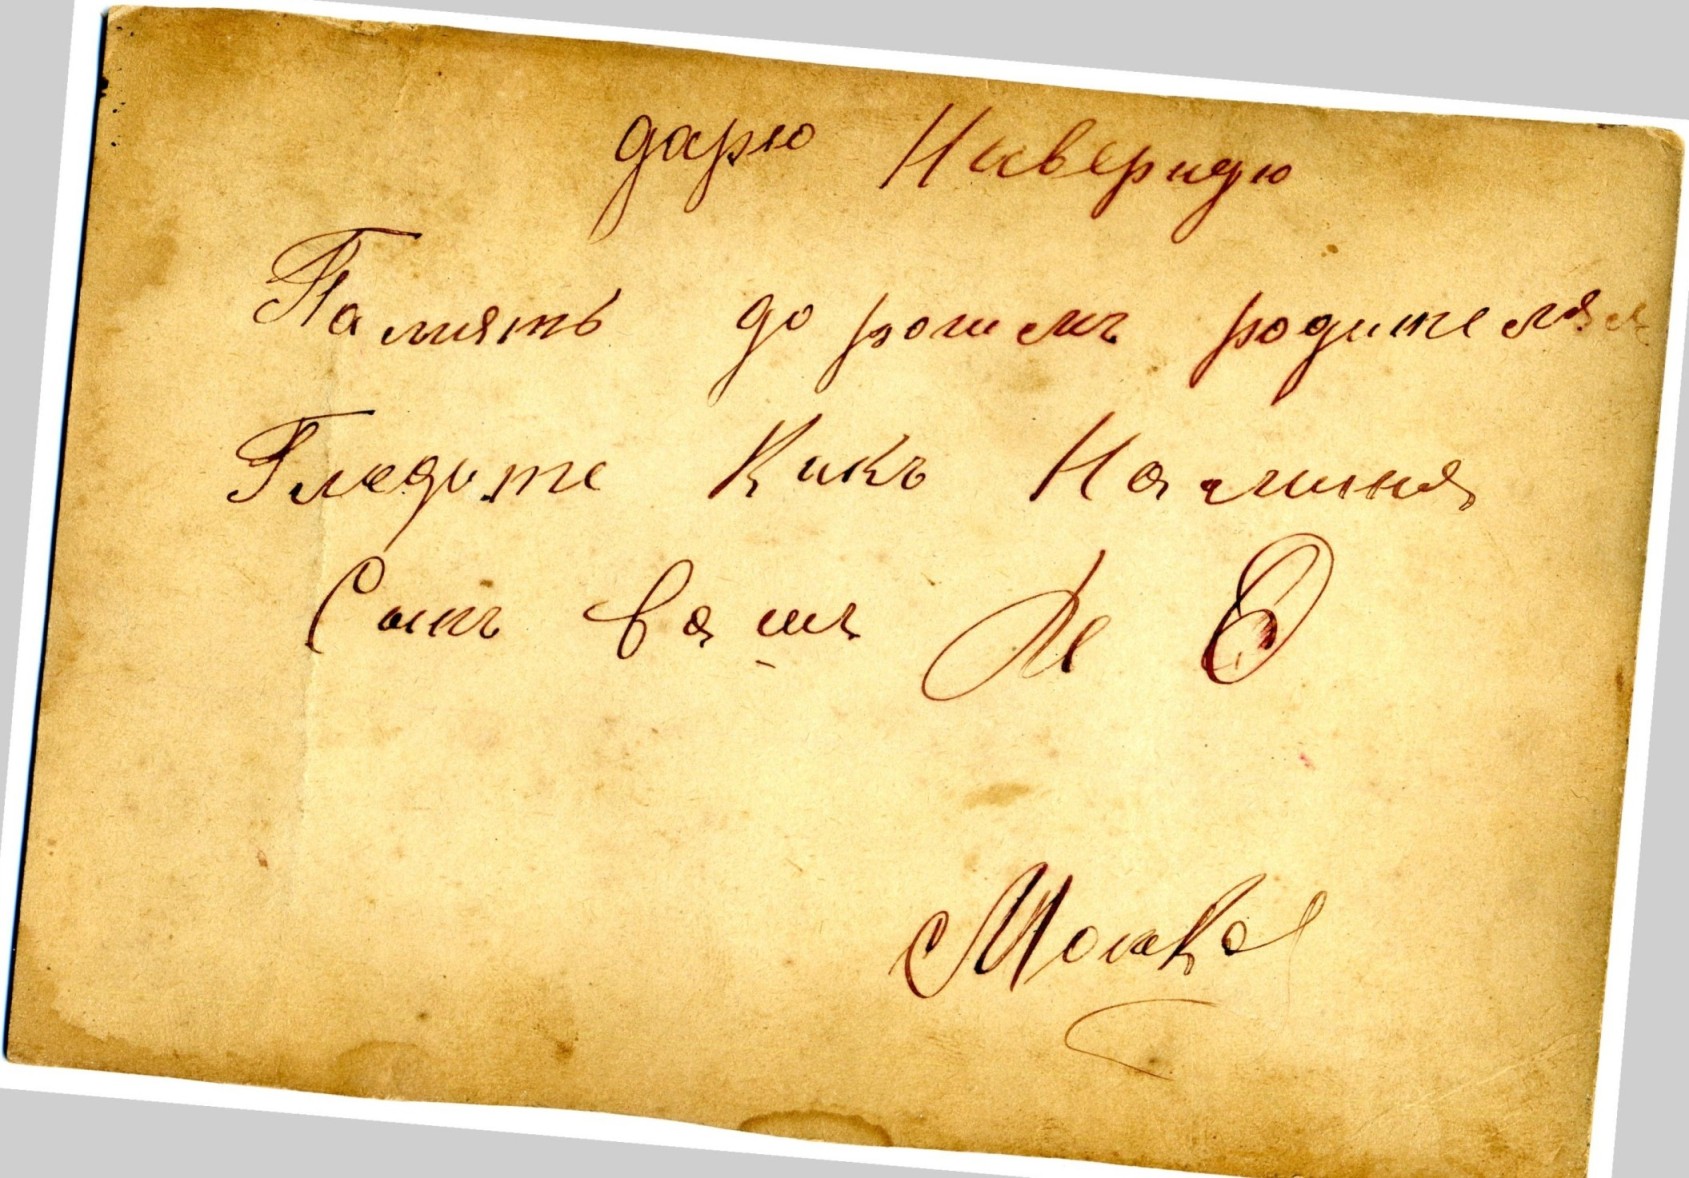 дарю Наверидю
Память дорогимъ родителям
Гледите Какъ На миня
Сынъ вашъ М О
Москва